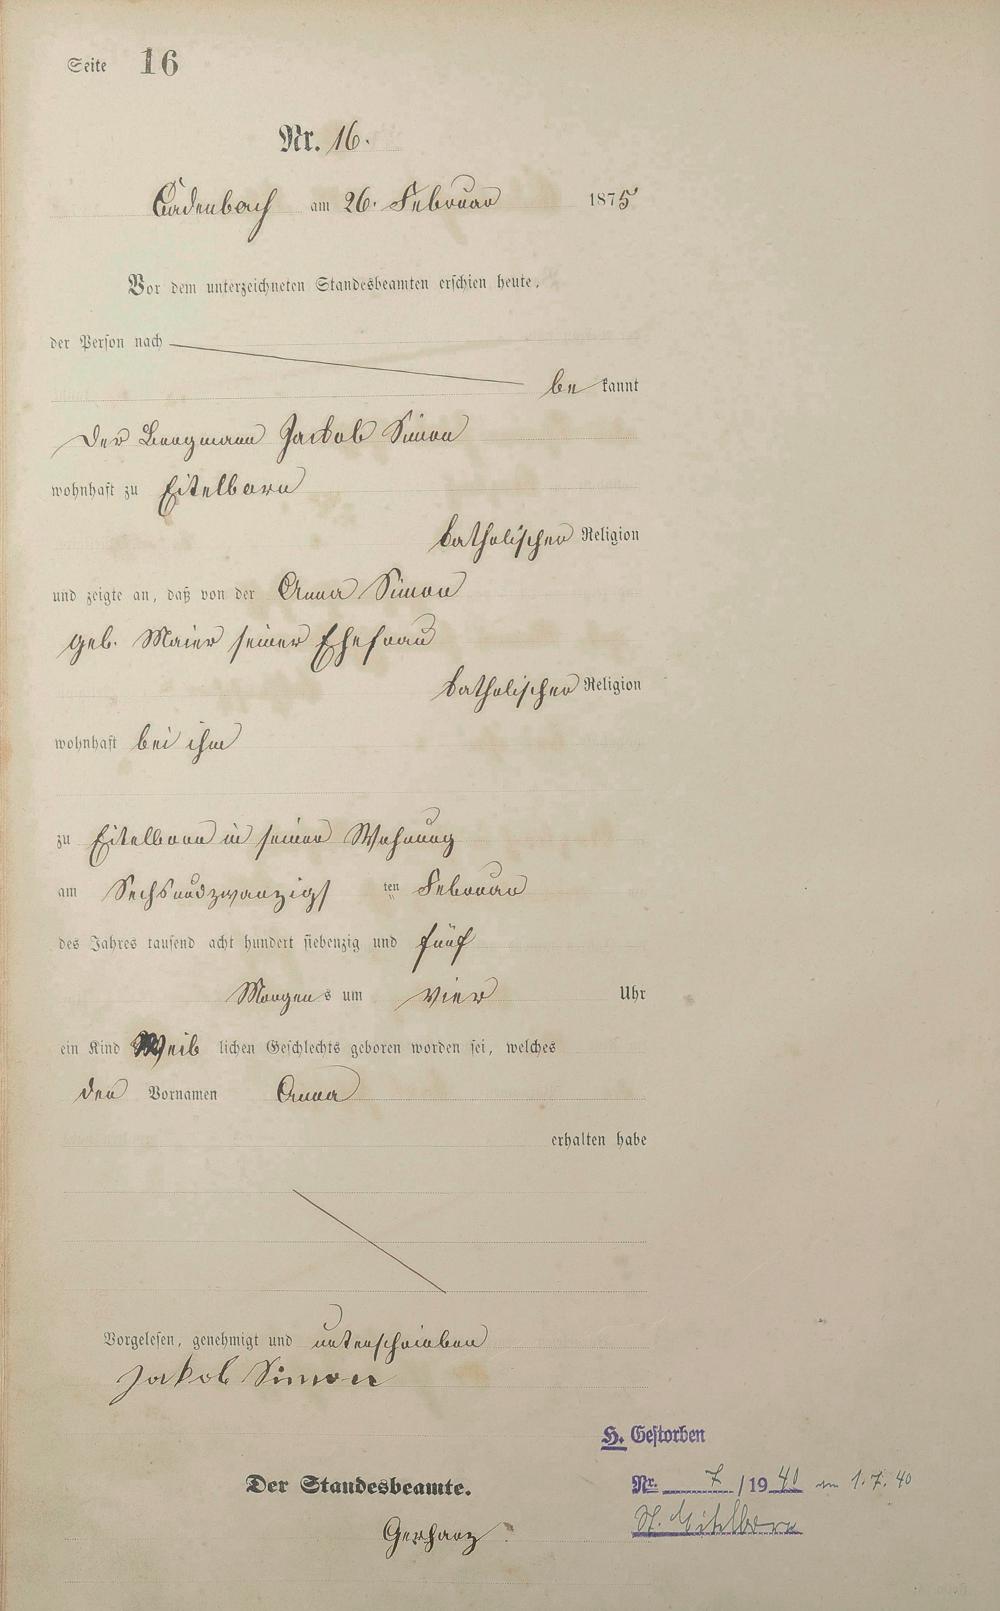 Seite 16
Nr. 16.
Cadenbach am 26. Februar 1875
Vor dem unterzeichneten Standesbeamten erschien heute,
der Person nach
be kannt
der Bergmann Jackob Simon
wohnhaft zu Eitelborn
katholischer Religion
und zeigte an, daß von der Anna Simon
geb. Maier seiner Ehefrau
katholischer Religion
wohnhaft bei ihm
zu Eitelborn in seiner Wohnung
am Sechsundzwanzigs ten Februar
des Jahres tausend acht hundert siebenzig und fünf
Morgens um vier Uhr
ein Kind Weib lichen Geschlechts geboren worden sei, welches
den Vornamen Anna
erhalten habe
Vorgelesen, genehmigt und unterschrieben
Jakob Simon
H. Gestorben
Der Standesbeamte.
Nr. 7 / 19 40 am 1.7.40
St. Eitelborn
Gerharz